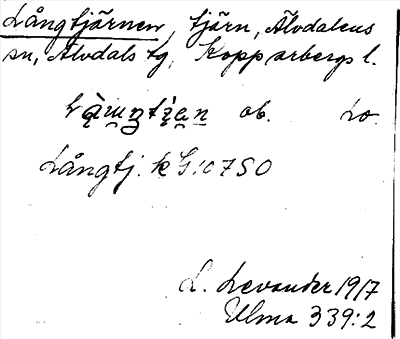 Långtjärnen, tjärn, Älvdalens
sn, Älvdals tg, Kopparbergs l.
ob. Lo.
Långtj. k G:o 7 SO
L. Levander 1917
Ulma 339:2